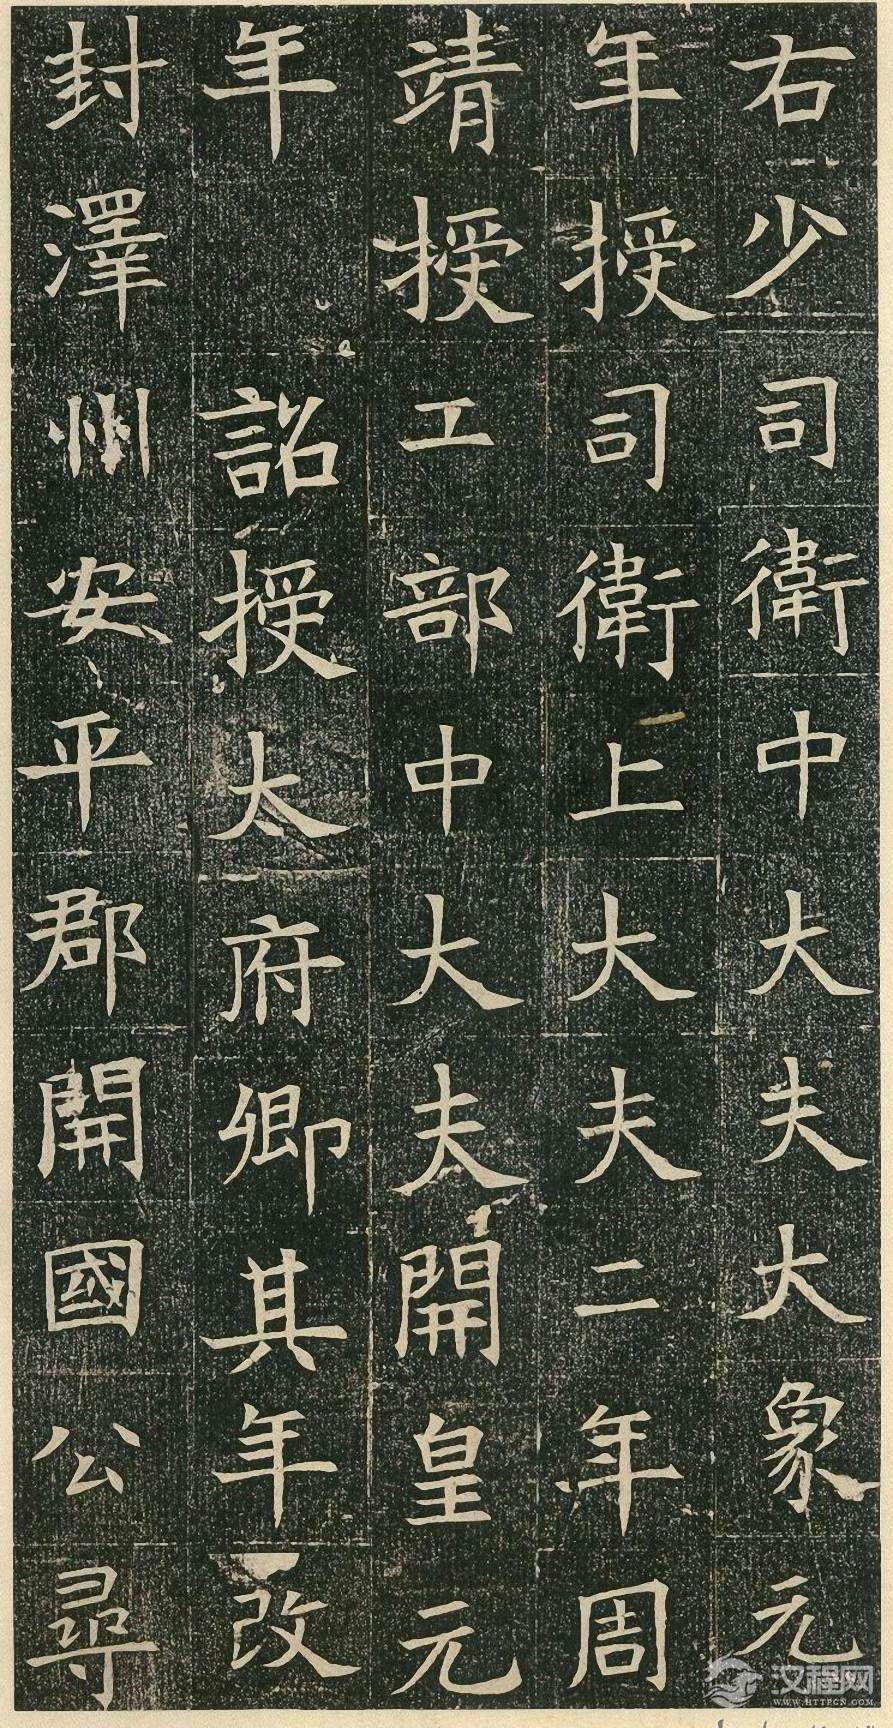 右少司衛中大夫大象元
年授司衛上大夫二年周
靖授工部中大夫開皇元
年 詔授太府卿其年改
封澤州安平郡開國公尋
汉程网
WWW.HTTPCN.COM